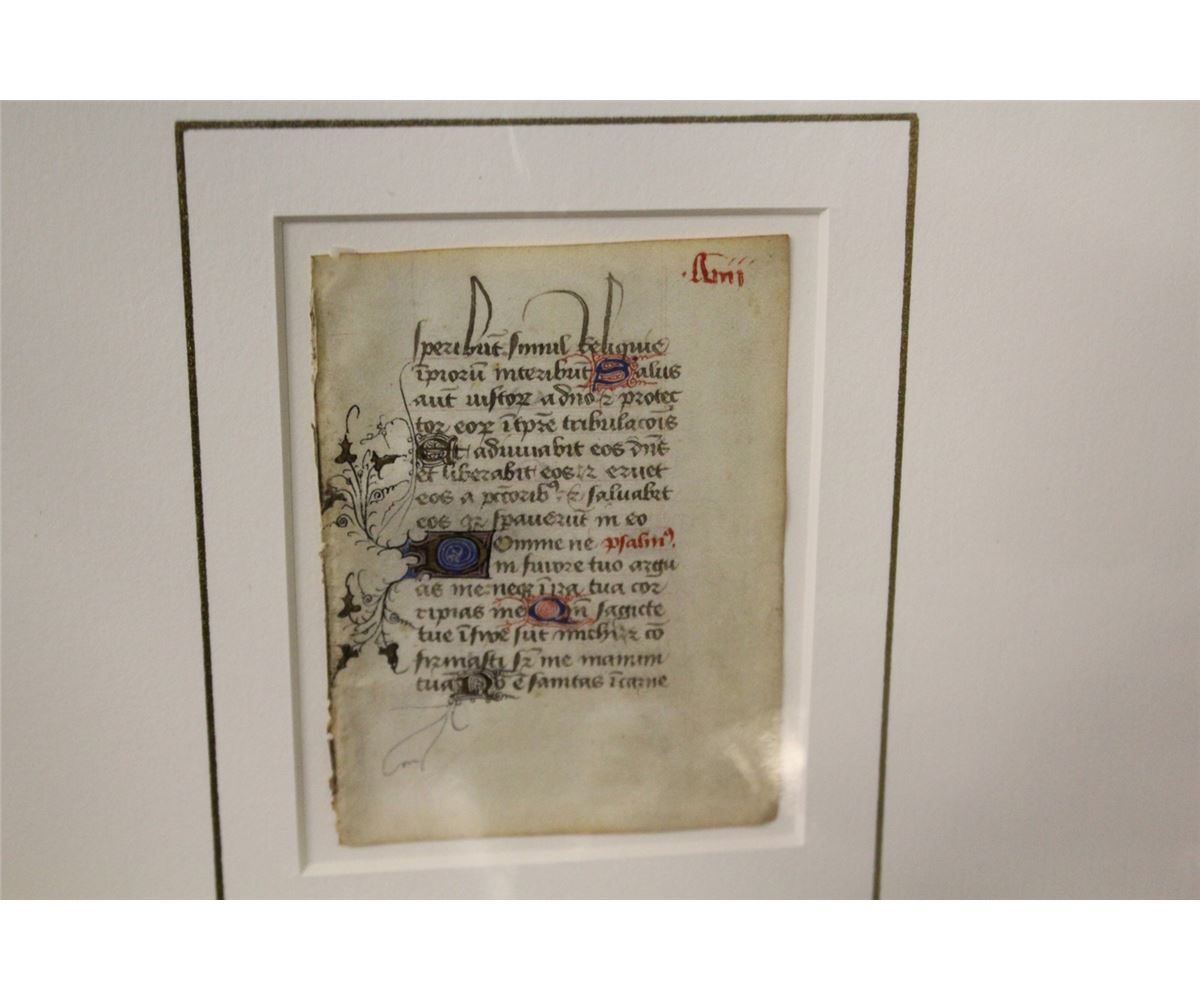 speribūt simul reliquie
īpiorū interibūt Salus
aūt iustoꝝ a dnō ⁊ protec
tor eoꝝ ī tpr̄e tribulacoīs
Et adiuuabit eos dn̄s
et liberabit eos ⁊ eruet
eos a pctōribꝯ ⁊ saluabit
eos qꝛ spauerūt in eo
Domine ne psalmꝯ.
in furore tuo argu
as me neqꝫ ī ira tua cor
ripias me Qm̄ sagicte
tue īfixe sūt michi ⁊ cō
firmasti sr̄ me manum
tuā Nō ē sanitas ī carne